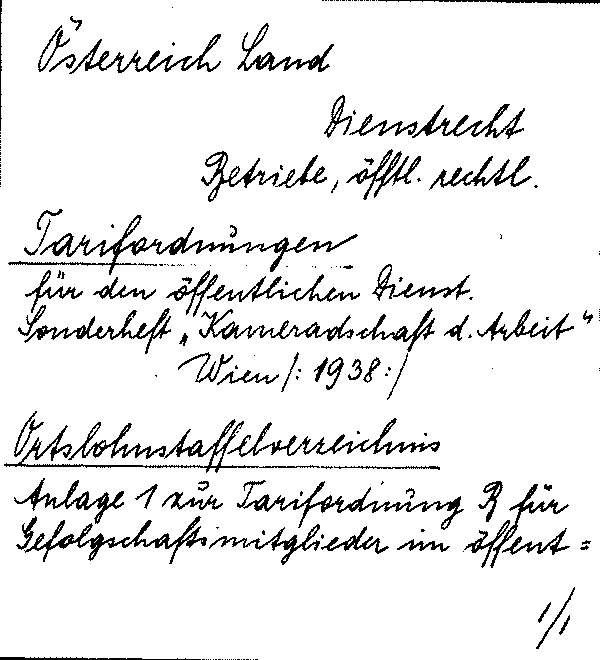 Österreich Land
Dienstrecht
Betriebe, öfftl. rechtl.
Tarifordnungen
für den öffentlichen Dienst.
Sonderheft „Kameradschaft d. Arbeit"
Wien /: 1938 :/
Ortslohnstaffelverzeichnis
Anlage 1 zur Tarifordnung B für
Gefolgschaftsmitglieder im öffent=
1/1